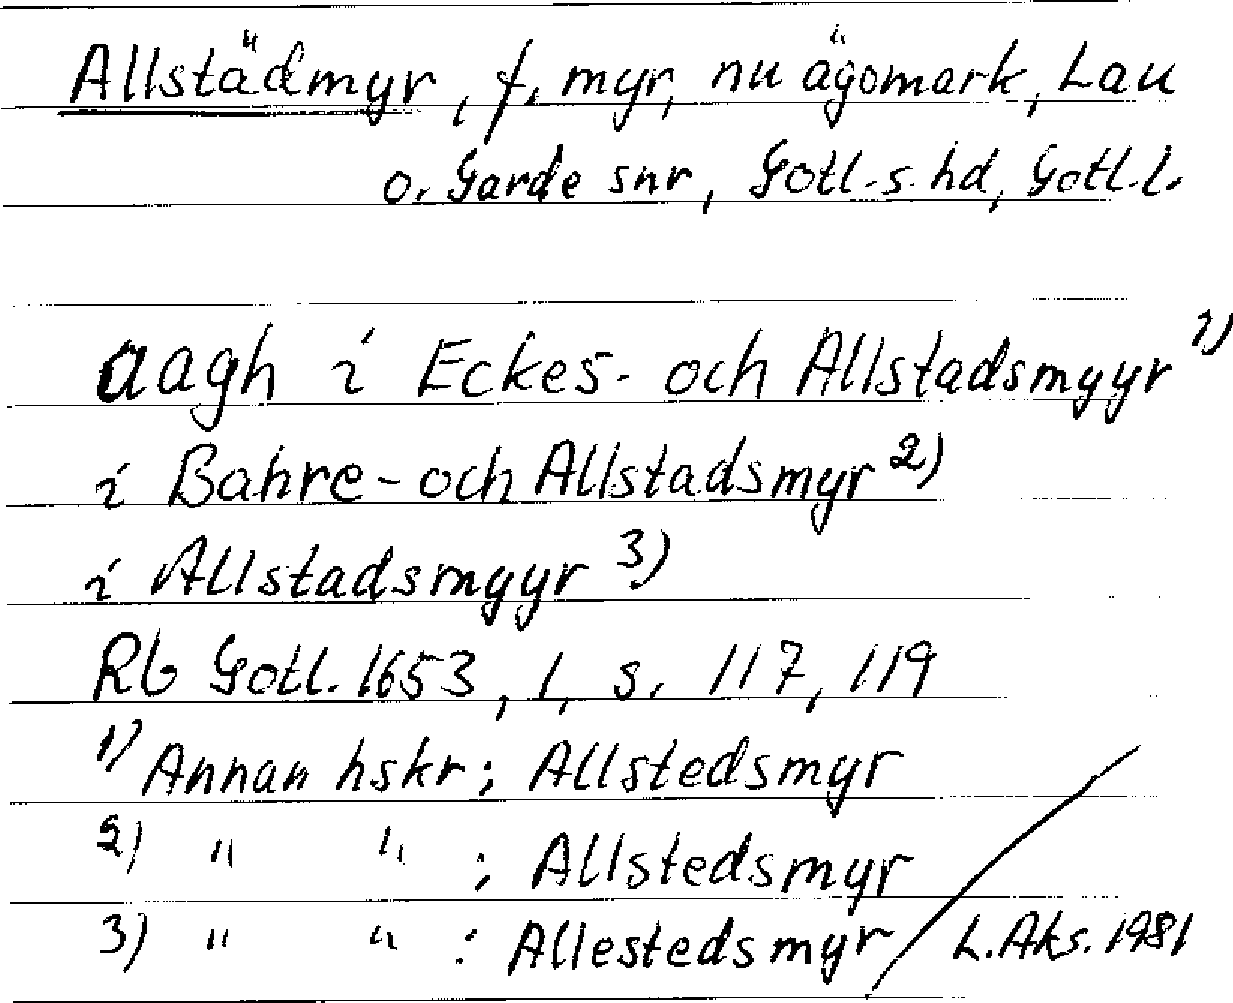 Allstädmyr, f, myr, nu ägomark, Lau
o. Garde snr, Gotl. s. hd, Gotl. l.
aagh i Eckes- och Allstadsmyyr 1)
i Bahre- och Allstadsmyr 2)
i Allstadsmyyr 3)
Rb Gotl. 1653, 1, s. 117, 119
1) Annan hskr; Allstedsmyr
2) " " ; Allstedsmyr
3) " " : Allestedsmyr / L. Aks. 1981